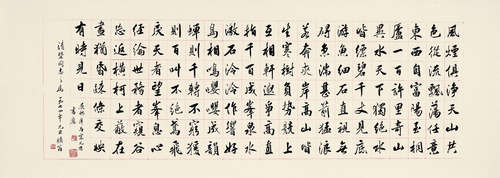 風煙俱淨天山共
色從流飄蕩任意
東西自富陽至桐
廬一百許里奇山
異水天下獨絕水
皆縹碧千丈見底
游魚細石直視無
礙急湍甚箭猛浪
若奔夾岸高山皆
生寒樹負勢競上
互相軒邈爭高直
指千百成峯泉水
激石泠泠作響好
鳥相鳴嚶嚶成韻
蟬則千轉不窮猨
則百叫無絕鳶飛
戾天者望峯息心
經綸世務者窺谷
忘返橫柯上蔽在
晝猶昏疏條交映
有時見日